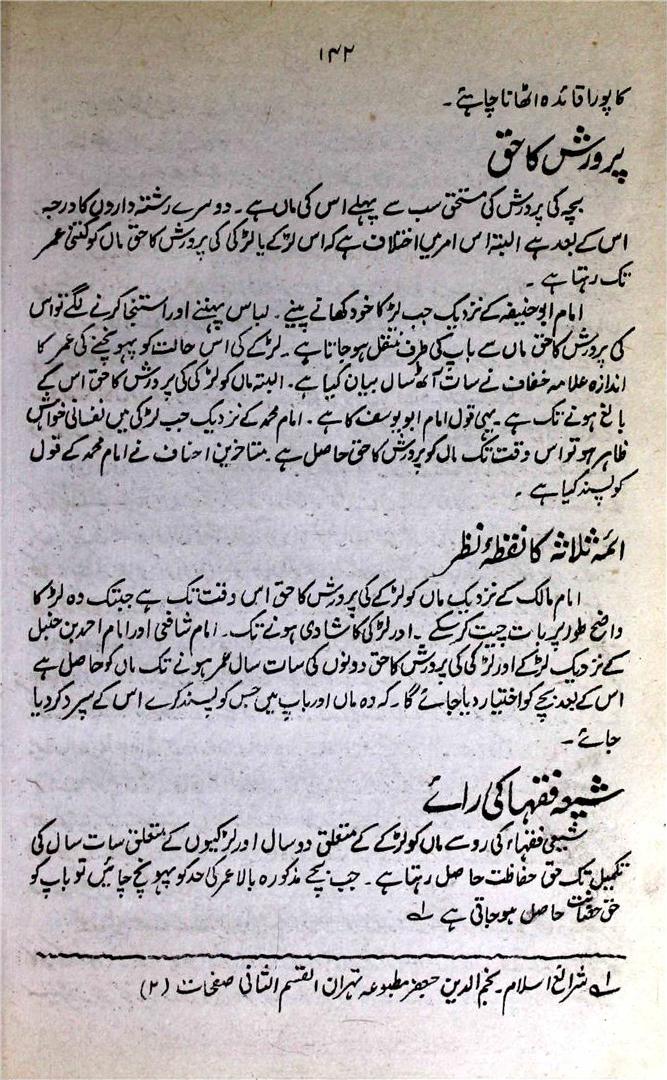 ۱۴۲
کا پورا فائدہ اٹھانا چاہئے۔
پرورش کا حق
بچہ کی پرورش کی مستحق سب سے پہلے اس کی ماں ہے۔ دوسرے رشتہ داروں کا درجہ
اس کے بعد ہے البتہ اس امر میں اختلاف ہے کہ اس لڑکے یا لڑکی کی پرورش کا حق ماں کو کتنی عمر
تک رہتا ہے۔
امام ابوحنیفہ کے نزدیک جب لڑکا خود کھانے پینے۔ لباس پہننے اور استنجا کرنے لگے تو اس
کی پرورش کا حق ماں سے باپ کی طرف منتقل ہو جاتا ہے۔ لڑکے کی اس حالت کو پہونچنے کی عمر کا
اندازہ علامہ خصاف نے سات آٹھ سال بیان کیا ہے۔ البتہ ماں کو لڑکی کی پرورش کا حق اس کے
بالغ ہونے تک ہے۔ یہی قول امام ابویوسف کا ہے۔ امام محمد کے نزدیک جب لڑکی میں نفسانی خواہش
ظاہر ہو تو اس وقت تک ماں کو پرورش کا حق حاصل ہے۔ متاخرین احناف نے امام محمد کے قول
کو پسند کیا ہے۔
ائمہ ثلاثہ کا نقطۂ نظر
امام مالک کے نزدیک ماں کو لڑکے کی پرورش کا حق اس وقت تک ہے جبتک وہ لڑکا
واضح طور پر بات چیت کر سکے۔ اور لڑکی کا شادی ہونے تک۔ امام شافعی اور امام احمد بن حنبل
کے نزدیک لڑکے اور لڑکی کی پرورش کا حق دونوں کی سات سال عمر ہونے تک ماں کو حاصل ہے
اس کے بعد بچے کو اختیار دیا جائے گا۔ کہ وہ ماں اور باپ میں جس کو پسند کرے اس کے سپرد کر دیا
جائے۔
شیعہ فقہا کی رائے
شیعی فقہاء کی رو سے ماں کو لڑکے کے متعلق دو سال اور لڑکیوں کے متعلق سات سال کی
تکمیل تک حق حفاظت حاصل رہتا ہے۔ جب بچے مذکورہ بالا عمر کی حد کو پہونچ جائیں تو باپ کو
حق حضانت حاصل ہو جاتی ہے ؎۱
؎۱ شرائع اسلام۔ نجم الدین جعفر مطبوعہ تہران القسم الثانی صفحات (۲)